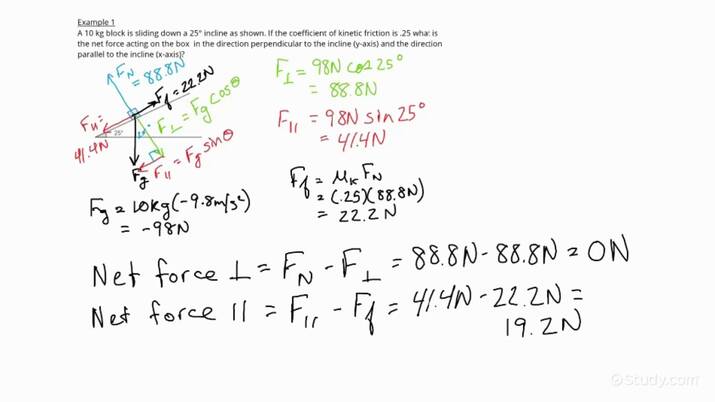 Example 1
A 10 kg block is sliding down a 25° incline as shown. If the coefficient of kinetic friction is .25 what is
the net force acting on the box in the direction perpendicular to the incline (y-axis) and the direction
parallel to the incline (x-axis)?
F_N = 88.8N
F_f = 22.2N
F_|| = 41.4N
25°
25°
F_⊥ = F_g cosθ
F_|| = F_g sinθ
F_g
F_⊥ = 98N cos 25°
= 88.8N
F_|| = 98N sin 25°
= 41.4N
F_g = 10kg(-9.8m/s²)
= -98N
F_f = μ_K F_N
= (.25)(88.8N)
= 22.2N
Net force ⊥ = F_N - F_⊥ = 88.8N - 88.8N = 0N
Net force || = F_|| - F_f = 41.4N - 22.2N =
19.2N
Study.com